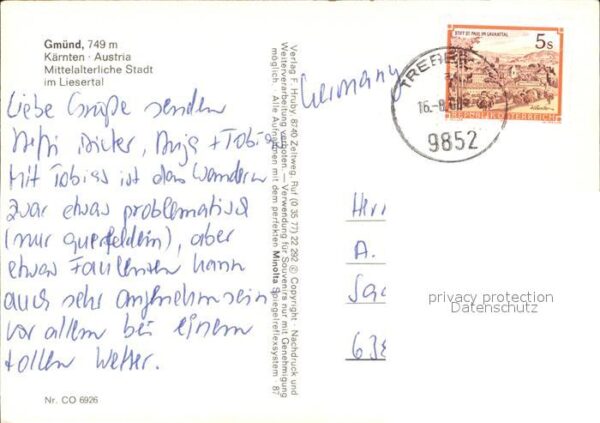 Gmünd, 749 m
Kärnten · Austria
Mittelalterliche Stadt
im Liesertal
Liebe Grüße senden
Dieter, Anja + Tobias
Mit Tobias ist das Wandern
zwar etwas problematisch
(nur querfeldein), aber
etwas Faulenzen kann
auch sehr angenehm sein
vor allem bei einem
tollen Wetter.
Nr. CO 6926
Verlag F. Hruby 8740 Zeltweg, Ruf (0 35 77) 22 282 © Copyright · Nachdruck und
Weiterverarbeitung verboten. — Verwendung für Souvenirs nur mit Genehmigung
möglich · Alle Aufnahmen mit dem perfekten Minolta Spiegelreflexsystem · 87
Germany
STIFT ST. PAUL IM LAVANTTAL
5s
REPUBLIK ÖSTERREICH
TREBE
16.-8.
9852
A.
63
privacy protection
Datenschutz